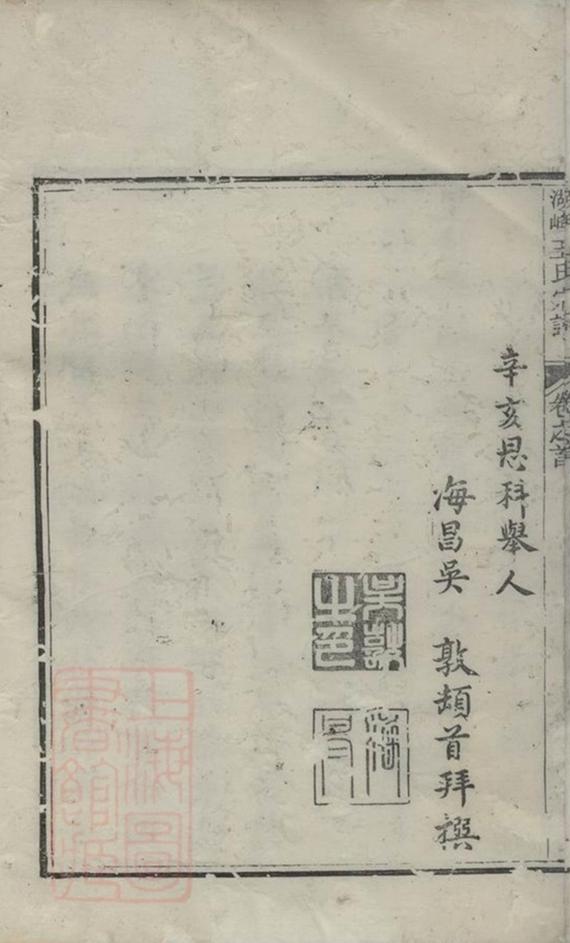 湖峰王氏宗譜
卷之首
辛亥恩科舉人
海昌吳 敦頓首拜撰
上海圖
書館藏